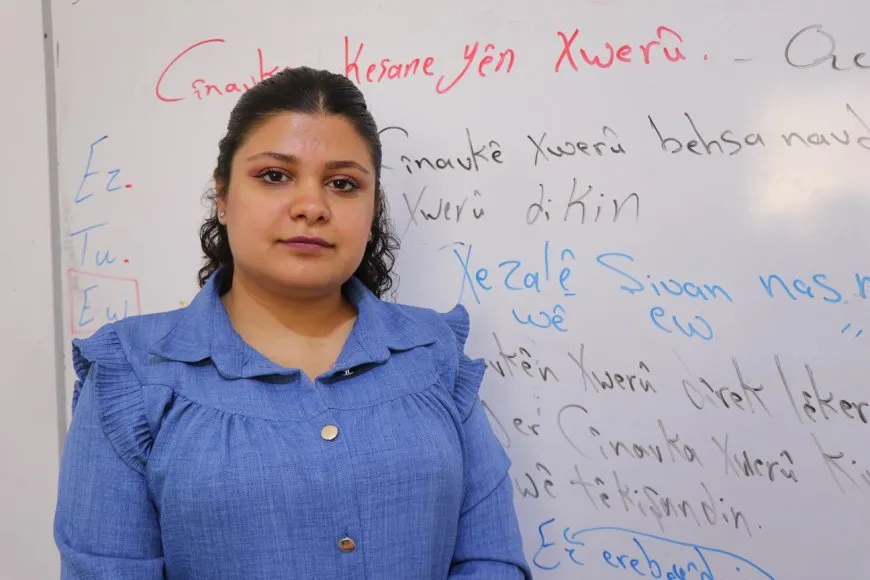 Cînavkên Kesane yên Xwerû. -
Ez.
Tu.
Ew
Cînavkê Xwerû behsa navd
Xwerû dikin
Xezalê Şivan nas
wê ew "
Xwerû direk lêker
Cînavka Xwerû
wê têkişandin.